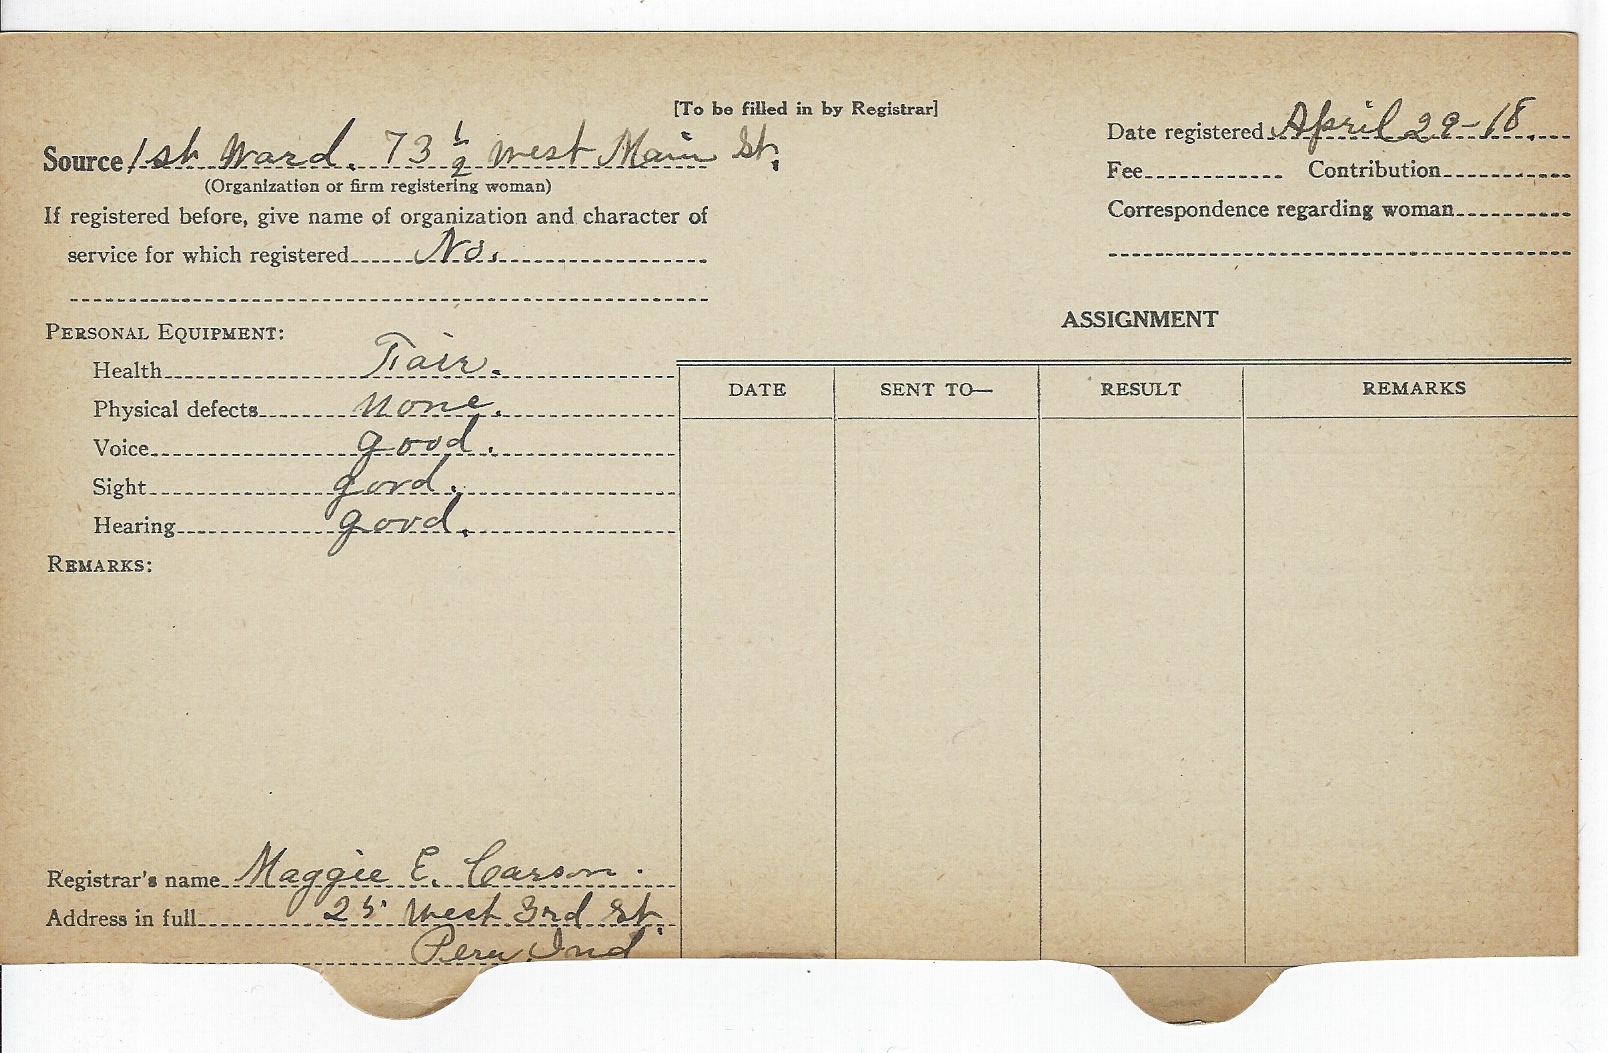 [To be filled in by Registrar]
Source 1st Ward. 73 1/2 West Main St.
(Organization or firm registering woman)
If registered before, give name of organization and character of
service for which registered No.
Date registered April 29-18.
Fee Contribution
Correspondence regarding woman
PERSONAL EQUIPMENT:
Health Fair.
Physical defects none.
Voice good.
Sight good.
Hearing good.
REMARKS:
ASSIGNMENT
DATE SENT TO— RESULT REMARKS
Registrar's name Maggie E. Carson.
Address in full 25 West 3rd St.
Peru, Ind